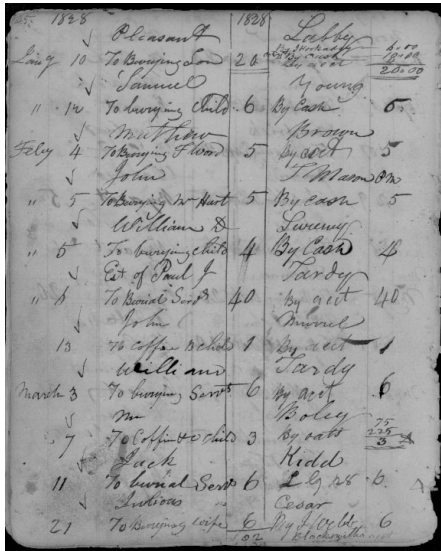 1828 1828
Pleasant Labby
Jany 10 To Burying Son 20 By Cash 20.00
Samuel Young
" 12 To burying Child 6 By Cash 6
Mathew Brown
Feby 4 To Burying F Word 5 By act 5
John T Mason
" 5 To Burying Mr Hart 5 By cash 5
William D
" 5 To burying child 4 By Cash 4
Est of Paul J Tardy
" 6 To Burial Servt 40 By act 40
John Murrel
13 To Coffin B child 1 By act 1
William Tardy
March 3 To burying Servt 6 By act 6
Mr Boley
7 To Coffin & c child 3 By oats 3
75
225
Jack Kidd
11 To burial Servt 6 6
Cesar
21 To Burying wife 6 By 6
102 Blacksmith